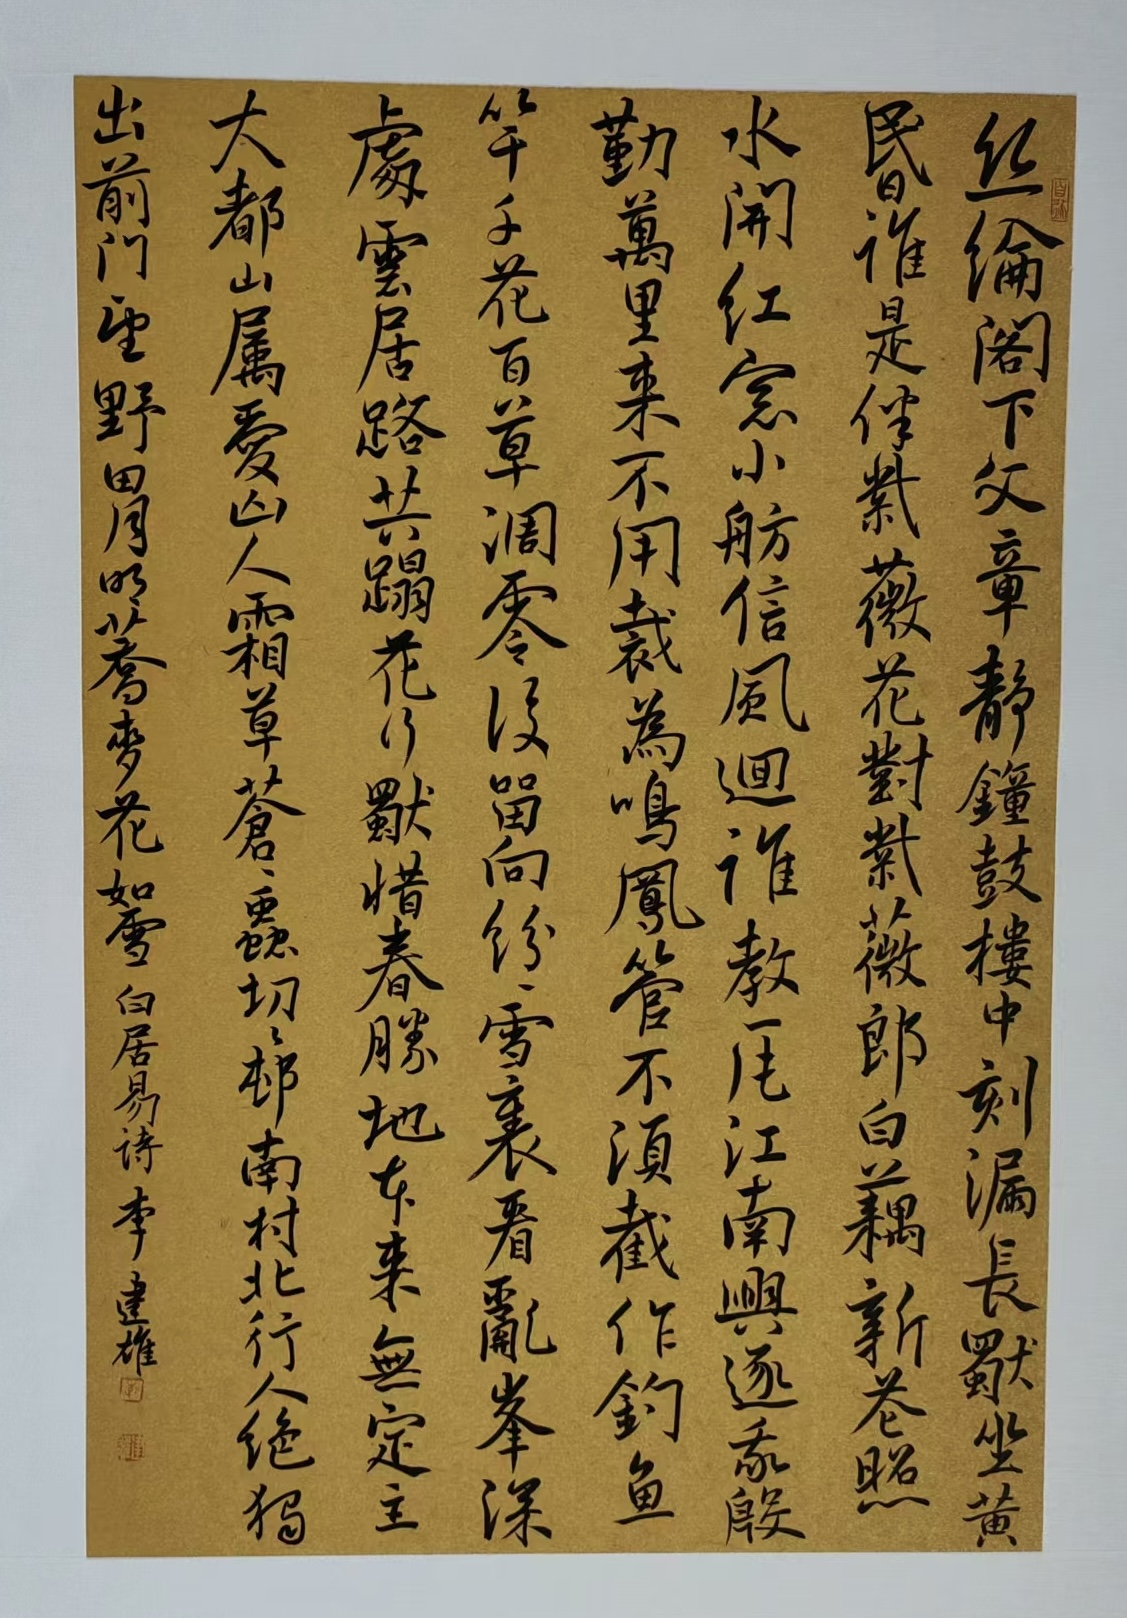 丝綸阁下文章静鐘鼓樓中刻漏長獨坐黄
昏誰是伴紫薇花對紫薇郎白藕新花照
水開红窓小舫信風迴誰教一片江南興逐我殷
勤萬里来不用裁為鳴鳳管不須截作釣鱼
竿千花百草凋零後留向纷々雪裏看亂峯深
處雲居路共蹋花行獨惜春勝地本来無定主
大都山属愛山人霜草蒼々蟲切々邨南村北行人绝獨
出前门望野田月明蕎麥花如雪 白居易诗 李建雄